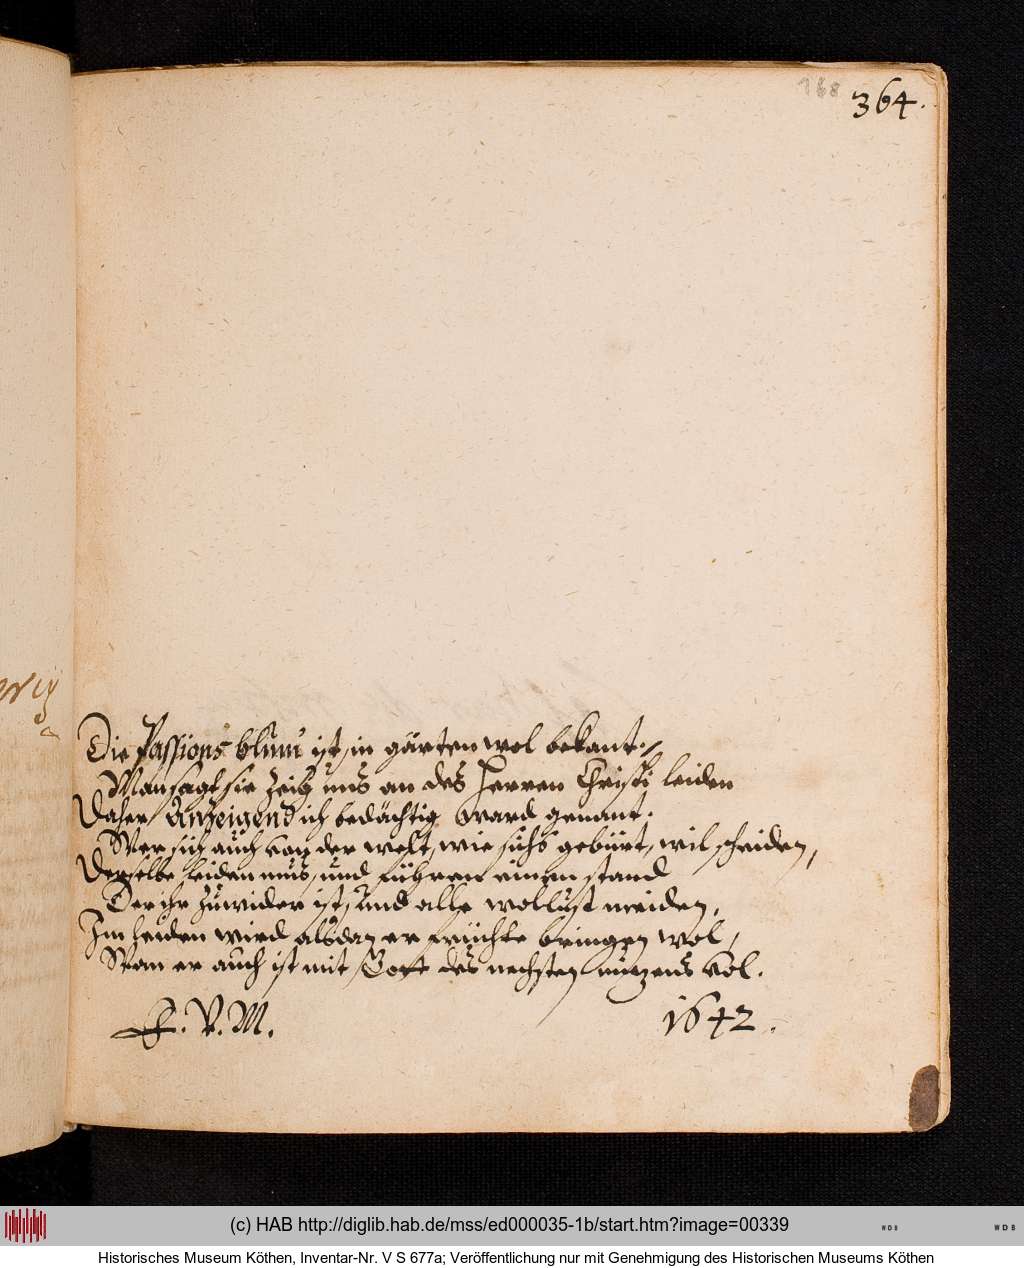 168
364.
Die Passions blum ist, in gärten wol bekant.
Man sagt sie zeig uns an des Herren Christi leiden
Daher Anzeigend ich bedächtig ward genant.
Wer sich auch von der welt, wie sichs gebürt, wil scheiden,
Derselbe leiden mus, und führen einen stand
Der ihr zuwider ist, Und alle wollust meiden,
Im leiden wird alsdan er früchte bringen wol,
Wan er auch ist mit Gott des nechsten nutzens vol.
F. V. M.
1642.
(c) HAB http://diglib.hab.de/mss/ed000035-1b/start.htm?image=00339
WDB
WDB
Historisches Museum Köthen, Inventar-Nr. V S 677a; Veröffentlichung nur mit Genehmigung des Historischen Museums Köthen